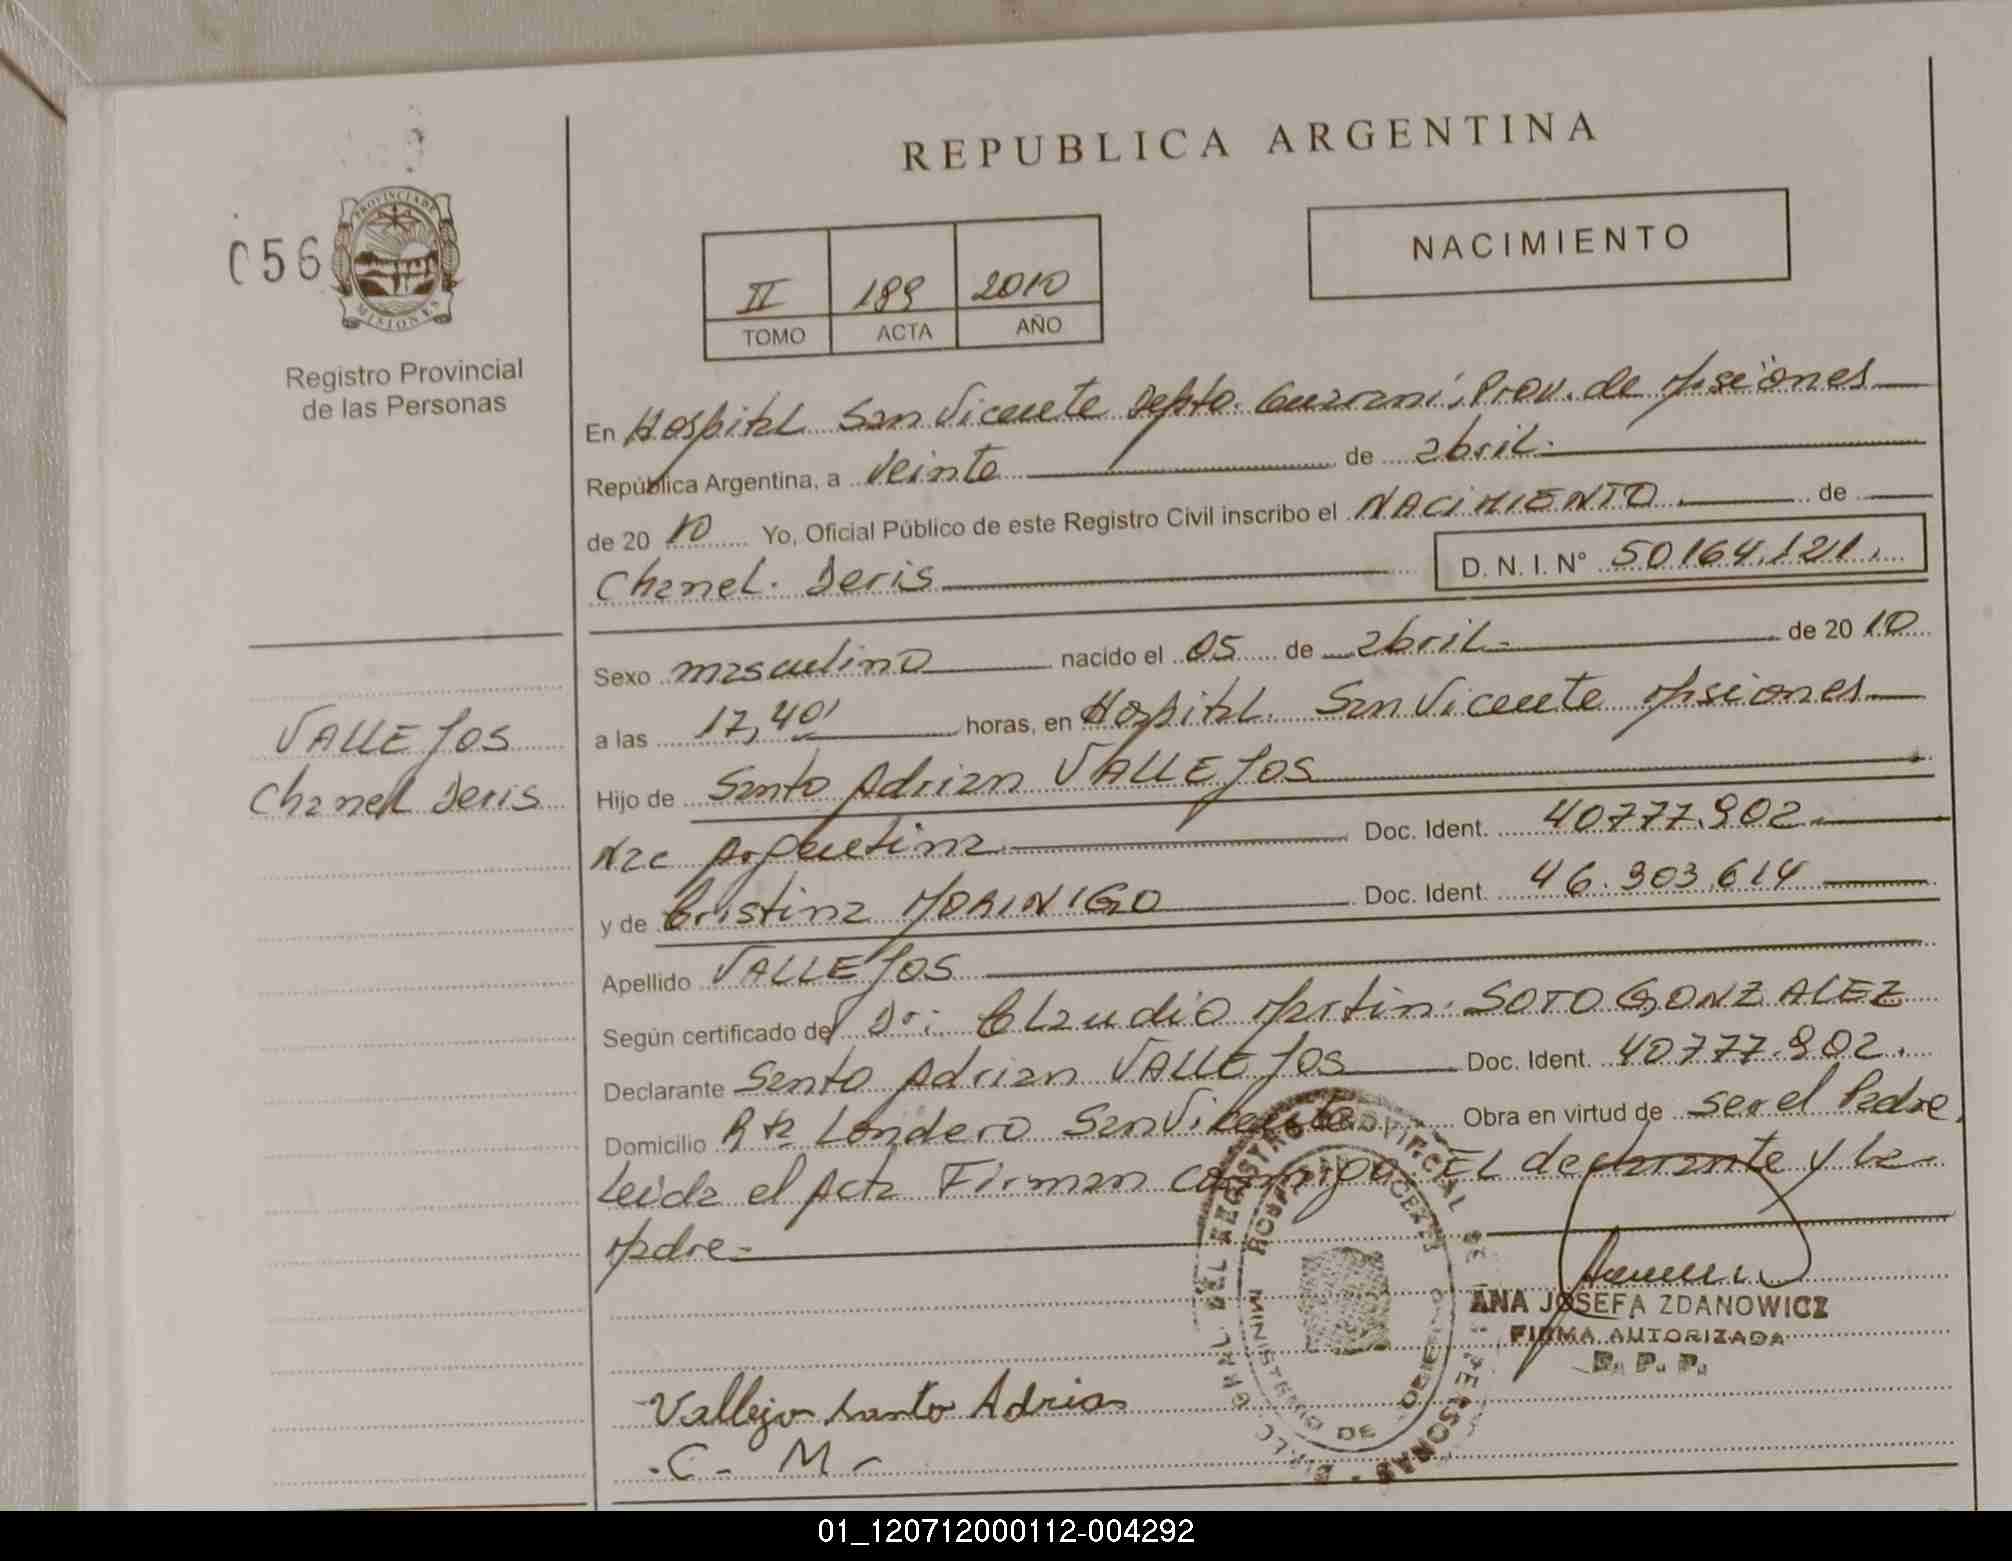 REPUBLICA ARGENTINA
056
PROVINCIA DE MISIONES
Registro Provincial
de las Personas
II 189 2010
TOMO ACTA AÑO
NACIMIENTO
En Hospital San Vicente Depto. Guarani, Prov. de Misiones
República Argentina, a Veinte de abril.
de 20 10 Yo, Oficial Público de este Registro Civil inscribo el NACIMIENTO de
Chanel. Deris D. N. I. Nº 50164.121.
VALLEJOS
Chanel Deris
Sexo masculino nacido el 05 de abril. de 20 10
a las 17,40' horas, en Hospital San Vicente Misiones
Hijo de Santo Adrian VALLEJOS
Nac Argentina Doc. Ident. 40777.902.
y de Cristina MORINIGO Doc. Ident. 46.303.614
Apellido VALLEJOS
Según certificado de Dr: Claudio Martin. SOTO GONZALEZ
Declarante Santo Adrian VALLEJOS Doc. Ident. 40777.902.
Domicilio Rta Londero San Vicente Obra en virtud de ser el Padre.
Leida el Acta Firman conmigo EL declarante y la
Madre-
ANA JOSEFA ZDANOWICZ
FIRMA AUTORIZADA
R. P. P.
Vallejo santo Adrian
C - M -
01_120712000112-004292